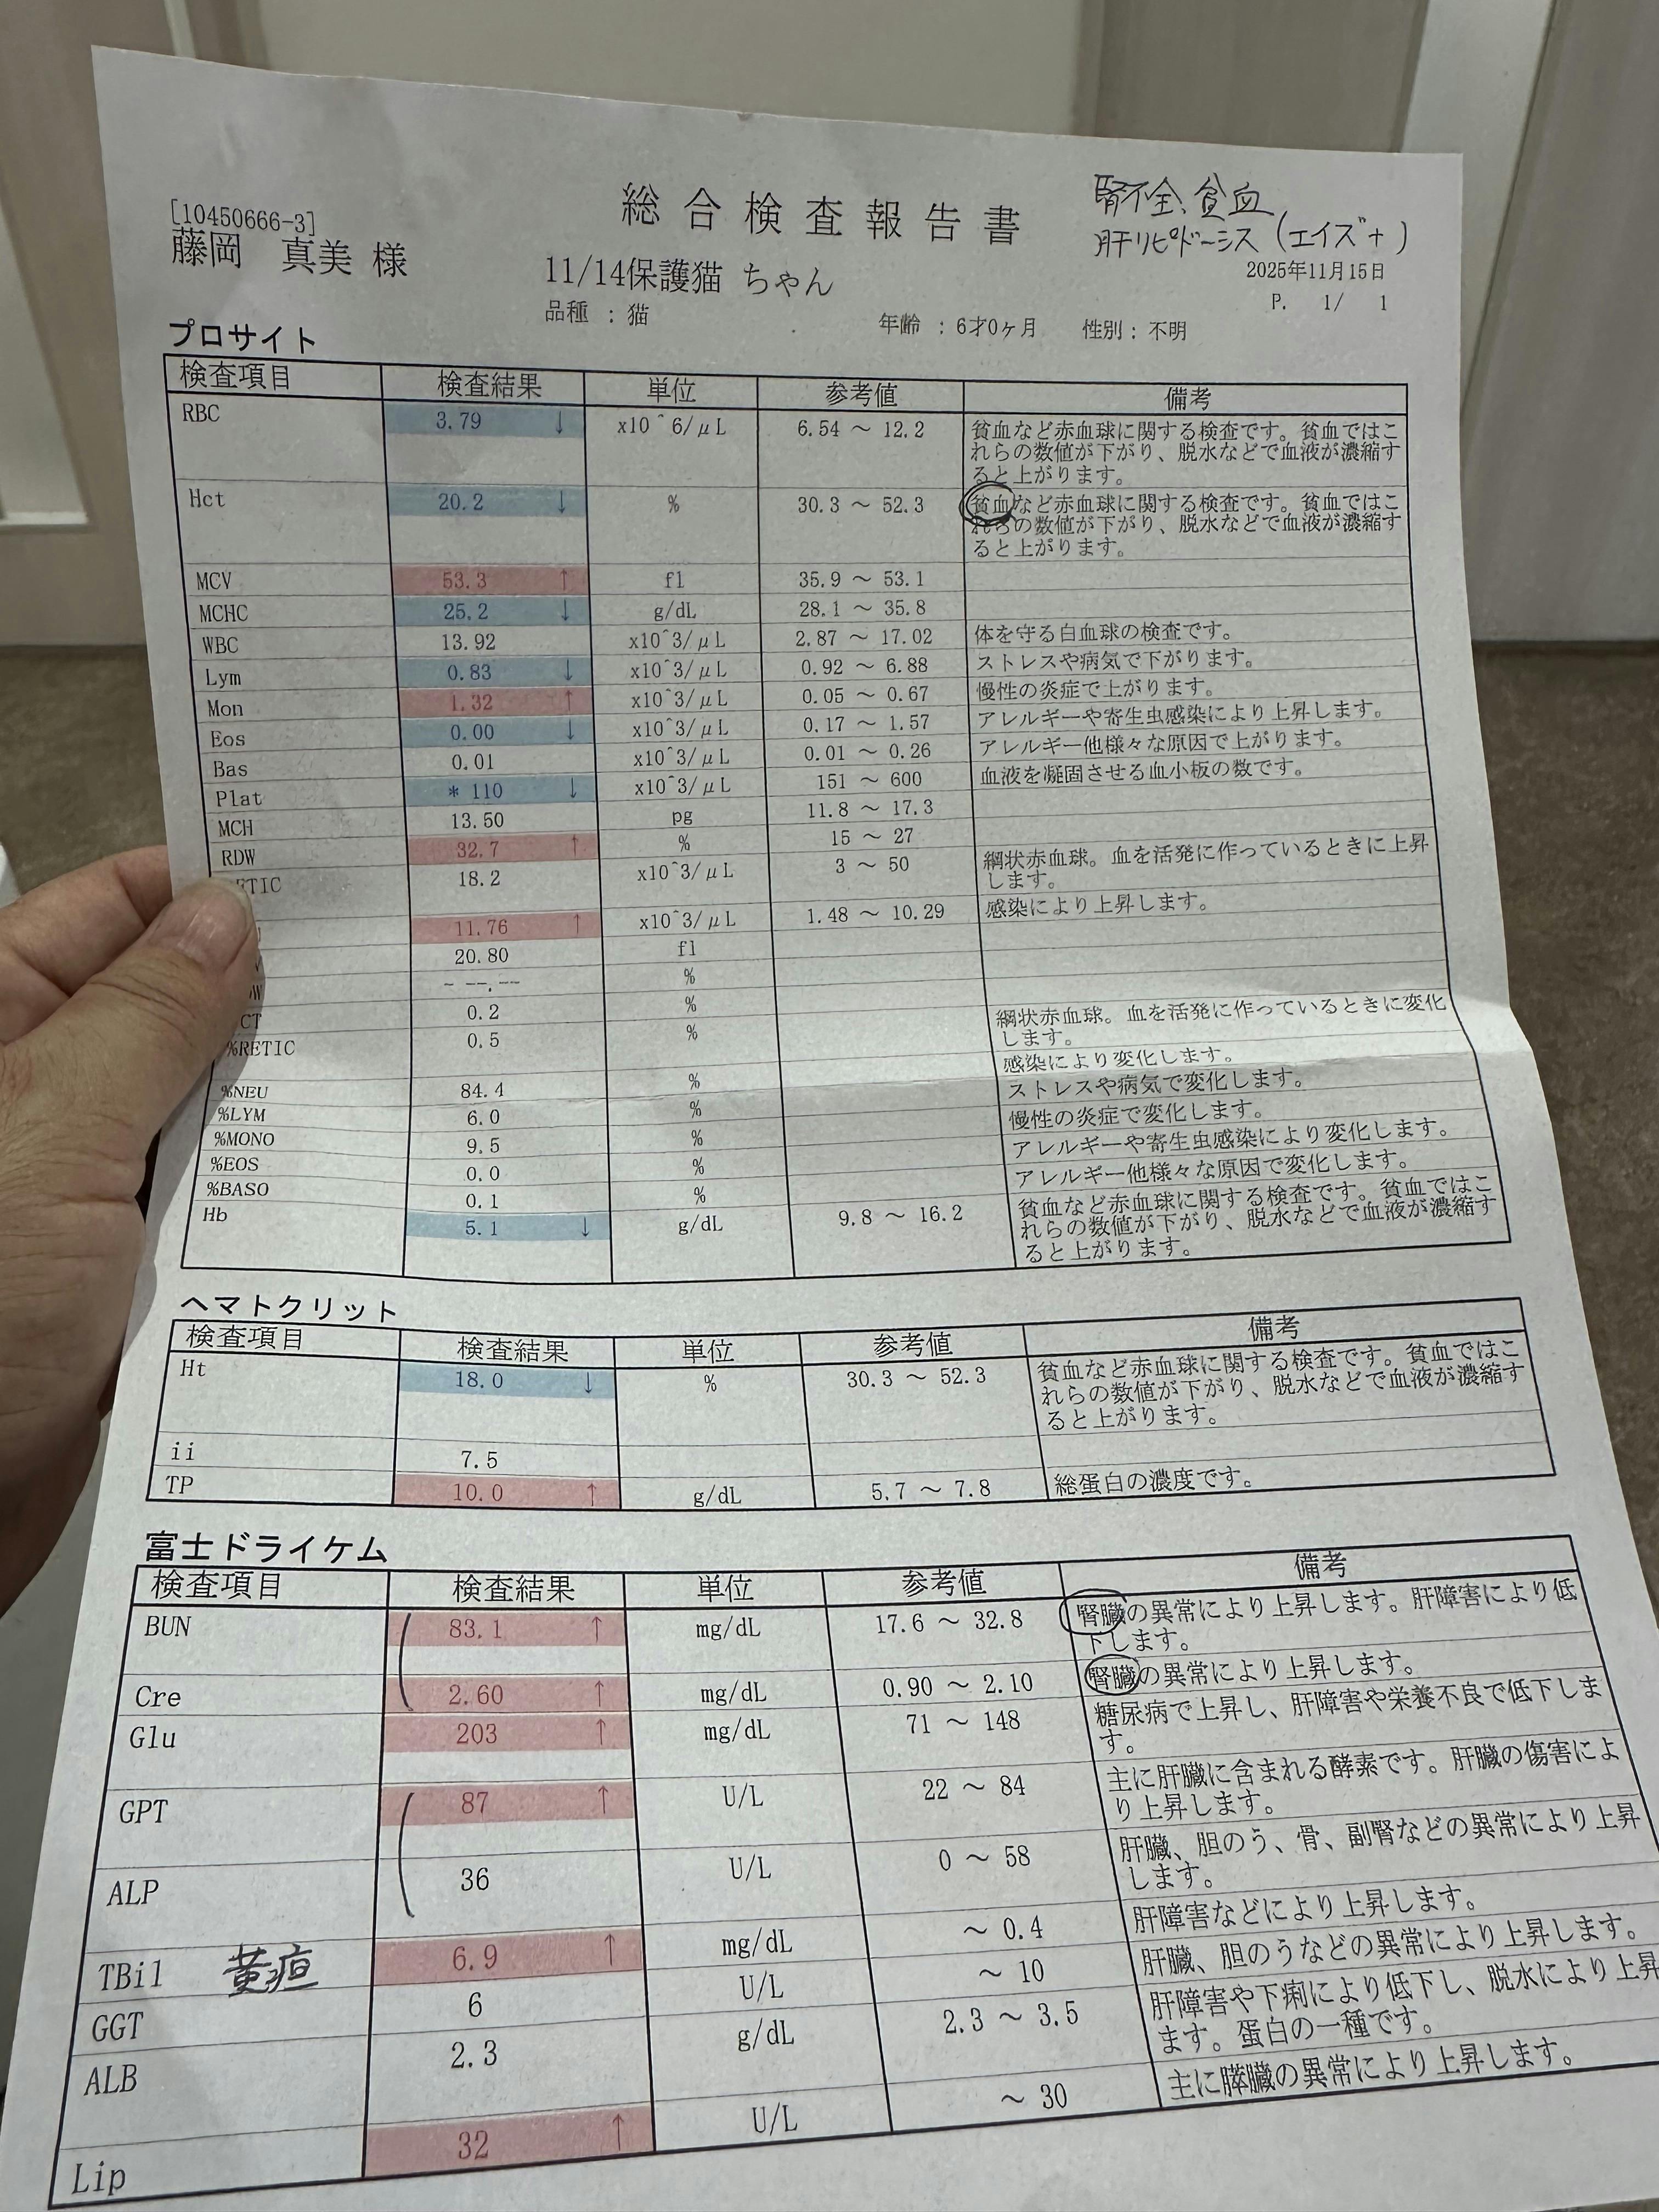 [10450666-3]
藤岡 真美 様
総合検査報告書
腎不全、貧血
肝リピドーシス (エイズ+)
11/14保護猫 ちゃん
2025年11月15日
P. 1/ 1
品種 : 猫 年齢 : 6才0ヶ月 性別 : 不明
プロサイト
検査項目 検査結果 単位 参考値 備考
RBC 3.79 ↓ x10^6/μL 6.54 ～ 12.2 貧血など赤血球に関する検査です。貧血ではこ
れらの数値が下がり、脱水などで血液が濃縮す
ると上がります。
Hct 20.2 ↓ % 30.3 ～ 52.3 貧血など赤血球に関する検査です。貧血ではこ
れらの数値が下がり、脱水などで血液が濃縮す
ると上がります。
MCV 53.3 ↑ fl 35.9 ～ 53.1
MCHC 25.2 ↓ g/dL 28.1 ～ 35.8
WBC 13.92 x10^3/μL 2.87 ～ 17.02 体を守る白血球の検査です。
Lym 0.83 ↓ x10^3/μL 0.92 ～ 6.88 ストレスや病気で下がります。
Mon 1.32 ↑ x10^3/μL 0.05 ～ 0.67 慢性の炎症で上がります。
Eos 0.00 ↓ x10^3/μL 0.17 ～ 1.57 アレルギーや寄生虫感染により上昇します。
Bas 0.01 x10^3/μL 0.01 ～ 0.26 アレルギー他様々な原因で上がります。
Plat * 110 ↓ x10^3/μL 151 ～ 600 血液を凝固させる血小板の数です。
MCH 13.50 pg 11.8 ～ 17.3
RDW 32.7 ↑ % 15 ～ 27
ETIC 18.2 x10^3/μL 3 ～ 50 網状赤血球。血を活発に作っているときに上昇
します。
11.76 ↑ x10^3/μL 1.48 ～ 10.29 感染により上昇します。
20.80 fl
W - --.-- %
CT 0.2 %
%RETIC 0.5 % 網状赤血球。血を活発に作っているときに変化
します。
%NEU 84.4 % 感染により変化します。
%LYM 6.0 % ストレスや病気で変化します。
%MONO 9.5 % 慢性の炎症で変化します。
%EOS 0.0 % アレルギーや寄生虫感染により変化します。
%BASO 0.1 % アレルギー他様々な原因で変化します。
Hb 5.1 ↓ g/dL 9.8 ～ 16.2 貧血など赤血球に関する検査です。貧血ではこ
れらの数値が下がり、脱水などで血液が濃縮す
ると上がります。
ヘマトクリット
検査項目 検査結果 単位 参考値 備考
Ht 18.0 ↓ % 30.3 ～ 52.3 貧血など赤血球に関する検査です。貧血ではこ
れらの数値が下がり、脱水などで血液が濃縮す
ると上がります。
ii 7.5
TP 10.0 ↑ g/dL 5.7 ～ 7.8 総蛋白の濃度です。
富士ドライケム
検査項目 検査結果 単位 参考値 備考
BUN 83.1 ↑ mg/dL 17.6 ～ 32.8 腎臓の異常により上昇します。肝障害により低
下します。
Cre 2.60 ↑ mg/dL 0.90 ～ 2.10 腎臓の異常により上昇します。
Glu 203 ↑ mg/dL 71 ～ 148 糖尿病で上昇し、肝障害や栄養不良で低下しま
す。
GPT 87 ↑ U/L 22 ～ 84 主に肝臓に含まれる酵素です。肝臓の傷害によ
り上昇します。
ALP 36 U/L 0 ～ 58 肝臓、胆のう、骨、副腎などの異常により上昇
します。
TBil 黄疸 6.9 ↑ mg/dL ～ 0.4 肝障害などにより上昇します。
GGT 6 U/L ～ 10 肝臓、胆のうなどの異常により上昇します。
ALB 2.3 g/dL 2.3 ～ 3.5 肝障害や下痢により低下し、脱水により上昇
ます。蛋白の一種です。
Lip 32 ↑ U/L ～ 30 主に膵臓の異常により上昇します。